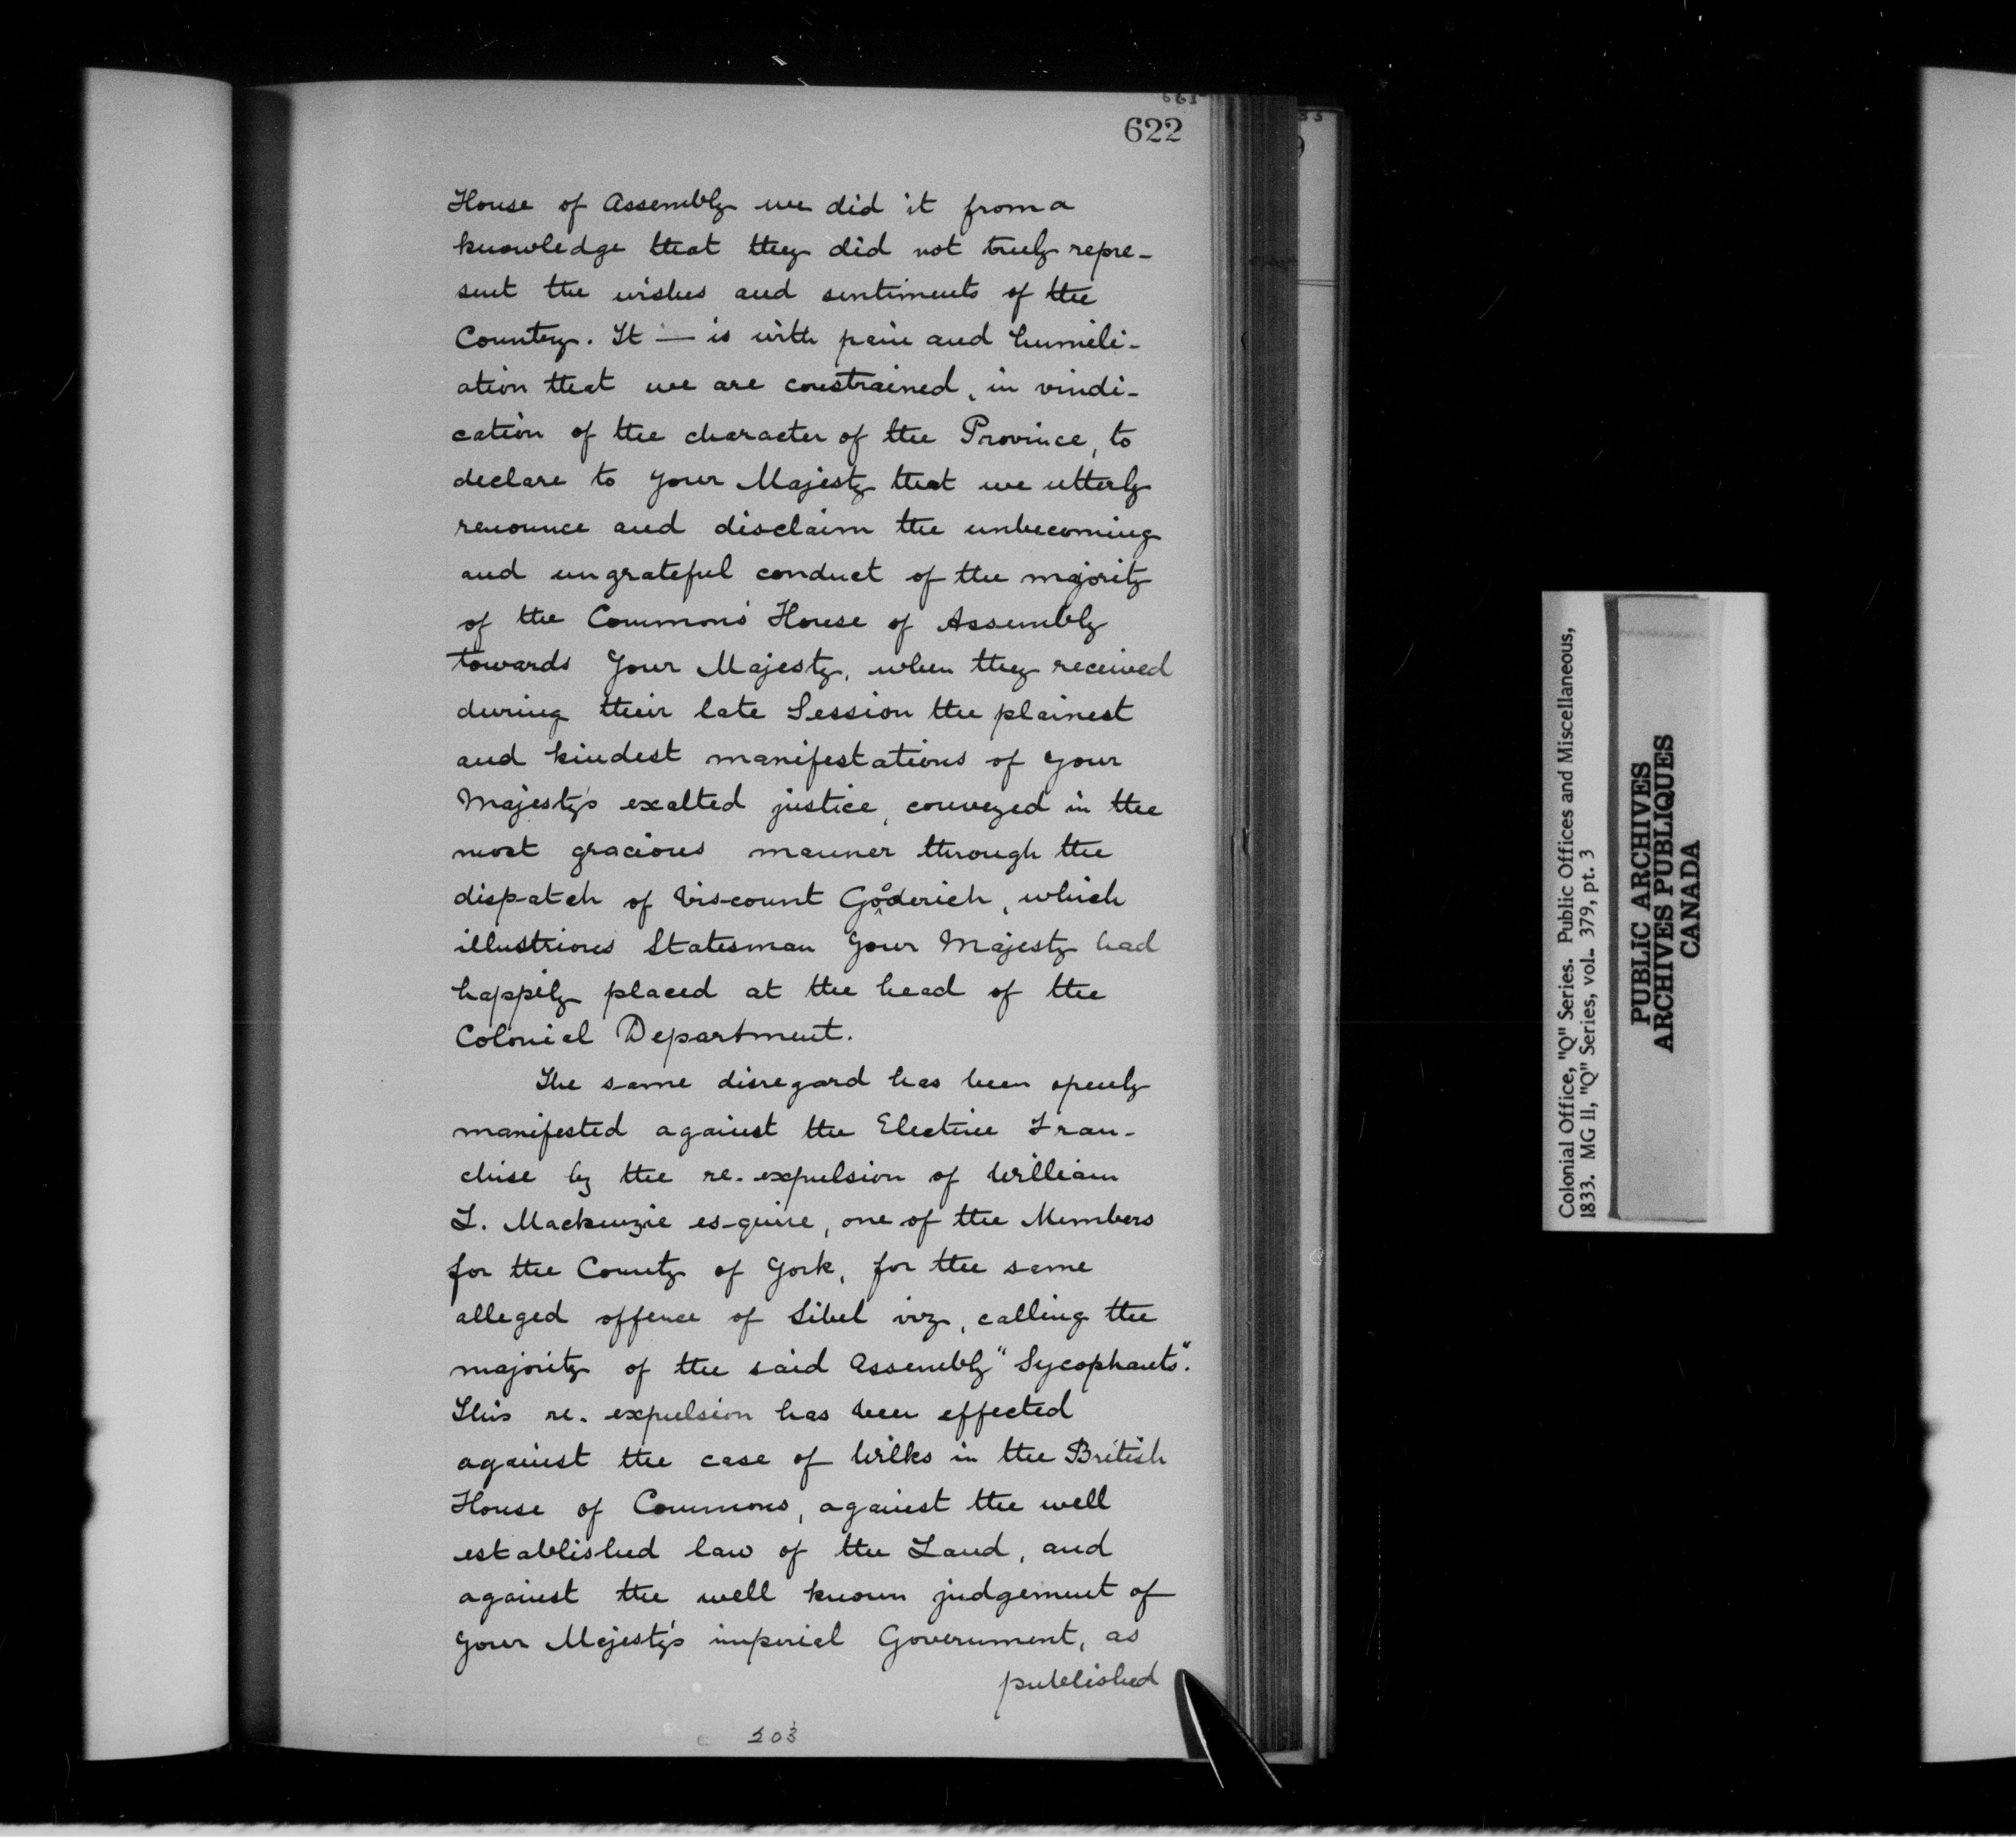 622
House of Assembly we did it from a
knowledge that they did not truly repre-
sent the wishes and sentiments of the
Country. It — is with pain and humili-
ation that we are constrained, in vindi-
cation of the character of the Province, to
declare to your Majesty that we utterly
renounce and disclaim the unbecoming
and ungrateful conduct of the majority
of the Common's House of Assembly
towards Your Majesty, when they received
during their late Session the plainest
and kindest manifestations of your
Majesty's exalted justice, conveyed in the
most gracious manner through the
dispatch of Viscount Goderich, which
illustrious Statesman Your Majesty had
happily placed at the head of the
Colonial Department.
The same disregard has been openly
manifested against the Elective Fran-
chise by the re-expulsion of William
L. Mackenzie es-quire, one of the Members
for the County of York, for the same
alleged offence of Libel viz, calling the
majority of the said Assembly "Sycophants".
This re-expulsion has been effected
against the case of Wilks in the British
House of Commons, against the well
established law of the Land, and
against the well known judgement of
your Majesty's imperial Government, as
published
203
Colonial Office, "Q" Series. Public Offices and Miscellaneous,
1833. MG 11, "Q" Series, vol. 379, pt. 3
PUBLIC ARCHIVES
ARCHIVES PUBLIQUES
CANADA